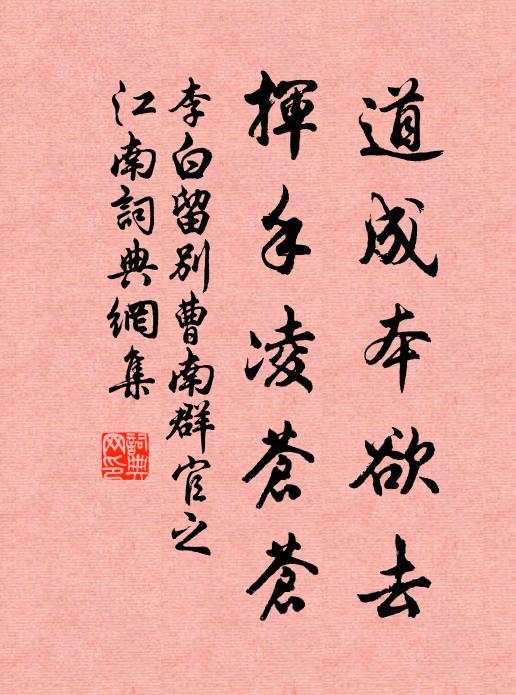 道成本欲去
揮手凌蒼蒼
李白留別曹南群官之
江南詞典網集
詞典
网印